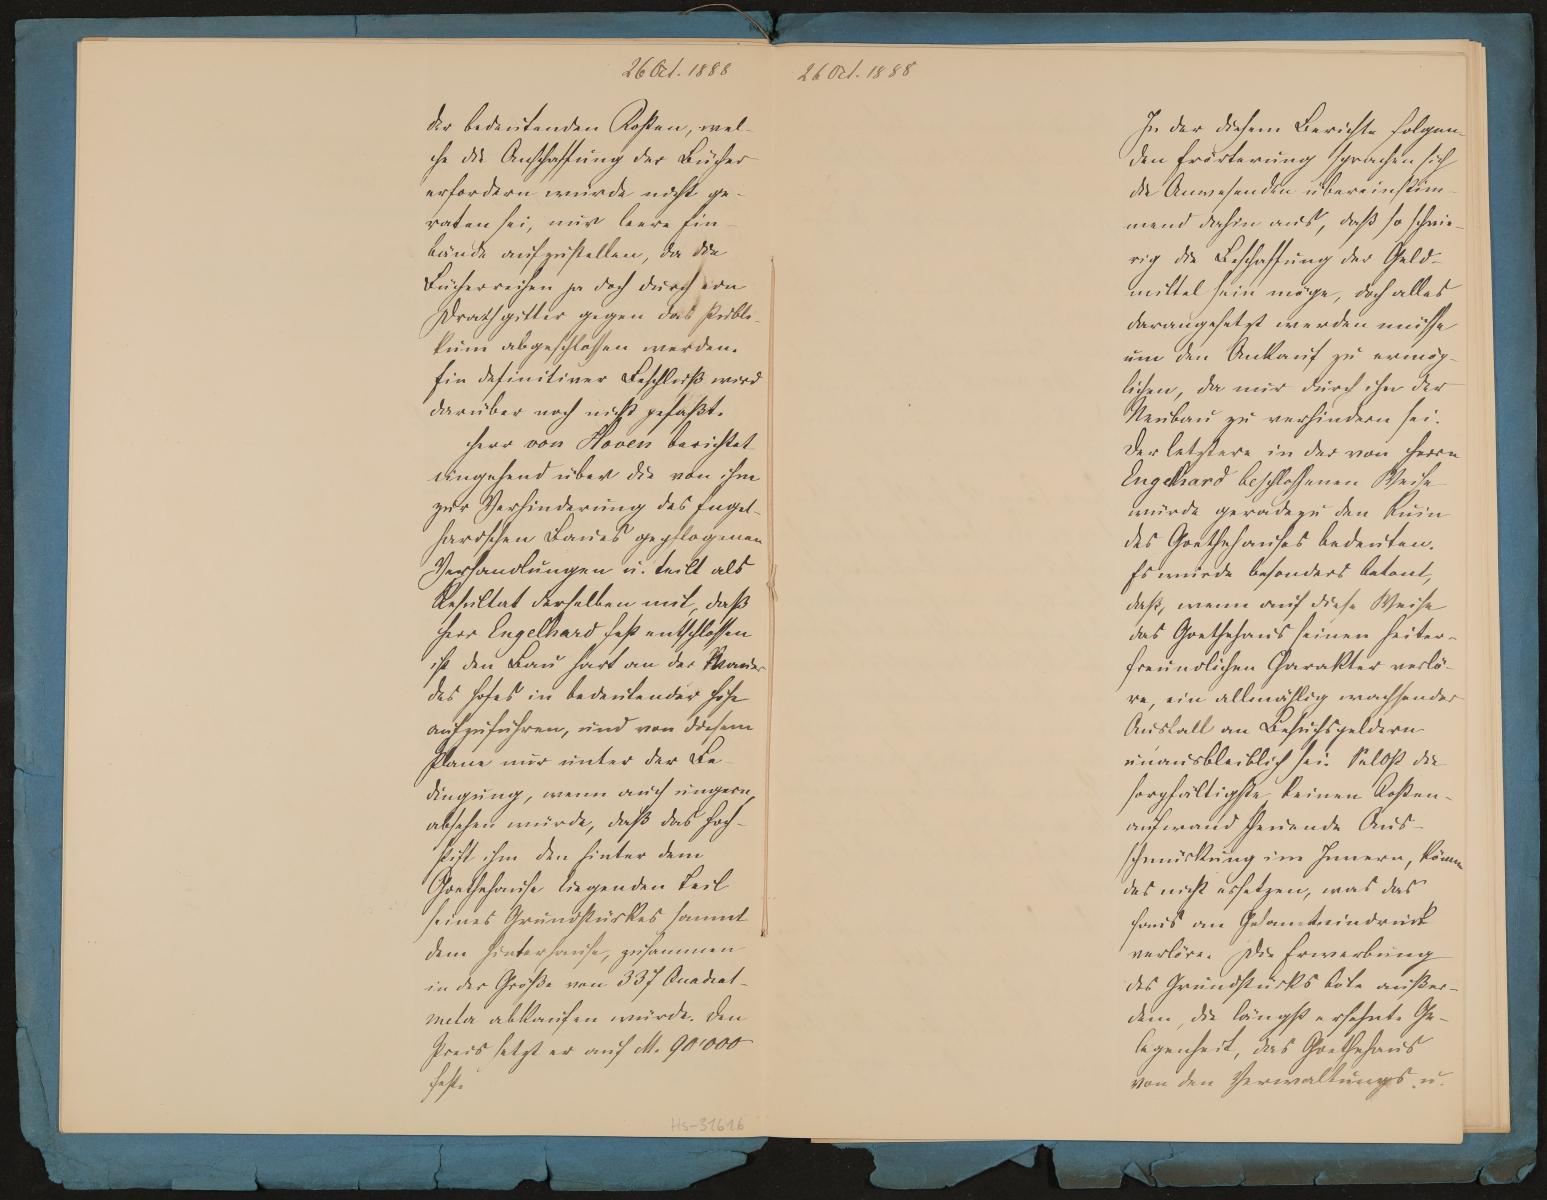 26 Oct. 1888
der bedeutenden Kosten, wel-
che die Anschaffung der Bücher
erfordern würde nicht ge-
raten sei, nur leere Ein-
bände aufzustellen, da die
Bücherreihen ja doch durch ein
Drathgitter gegen das Publi-
kum abgeschlossen werden.
Ein definitiver Beschluß wird
darüber noch nicht gefaßt.
Herr von Hoven berichtet
eingehend über die von ihm
zur Verhinderung des Engel-
hardschen Baues gepflogenen
Verhandlungen u. teilt als
Resultat derselben mit, daß
Herr Engelhard fest entschlossen
ist den Bau hart an der Mauer
des Hofes in bedeutender Höhe
aufzuführen, und von diesem
Plane nur unter der Be-
dingung, wenn auch ungern,
absehen würde, daß das Hoch-
stift ihm den hinter dem
Goethehause liegenden Teil
seines Grundstückes sammt
dem Hinterhause, zusammen
in der Größe von 337 Quadrat-
meter abkaufen würde. Den
Preis setzt er auf M. 90'000
fest.
Hs-31616
26 Oct. 1888
In der diesem Berichte folgen-
den Erörterung sprachen sich
die Anwesenden übereinstim-
mend dahin aus, daß so schwie-
rig die Beschaffung der Geld-
mittel sein möge, doch alles
darangesetzt werden müsse
um den Ankauf zu ermög-
lichen, da nur durch ihn der
Neubau zu verhindern sei.
Der letztere in der von Herrn
Engelhard beschlossenen Weise
würde geradezu den Ruin
des Goethehauses bedeuten.
Es wurde besonders betont,
daß, wenn auf diese Weise
das Goethehaus seinen heiter-
freundlichen Charakter verlö-
re, ein allmählig wachsender
Ausfall an Besuchsgeldern
unausbleiblich sei. Selbst die
sorgfältigste keinen Kosten-
aufwand scheuende Aus-
schmückung im Innern, könne
das nicht ersetzen, was das
Haus an Gesamteindruck
verlöre. Die Erwerbung
des Grundstücks böte außer-
dem, die längst ersehnte Ge-
legenheit, das Goethehaus
von den Verwaltungs- u.